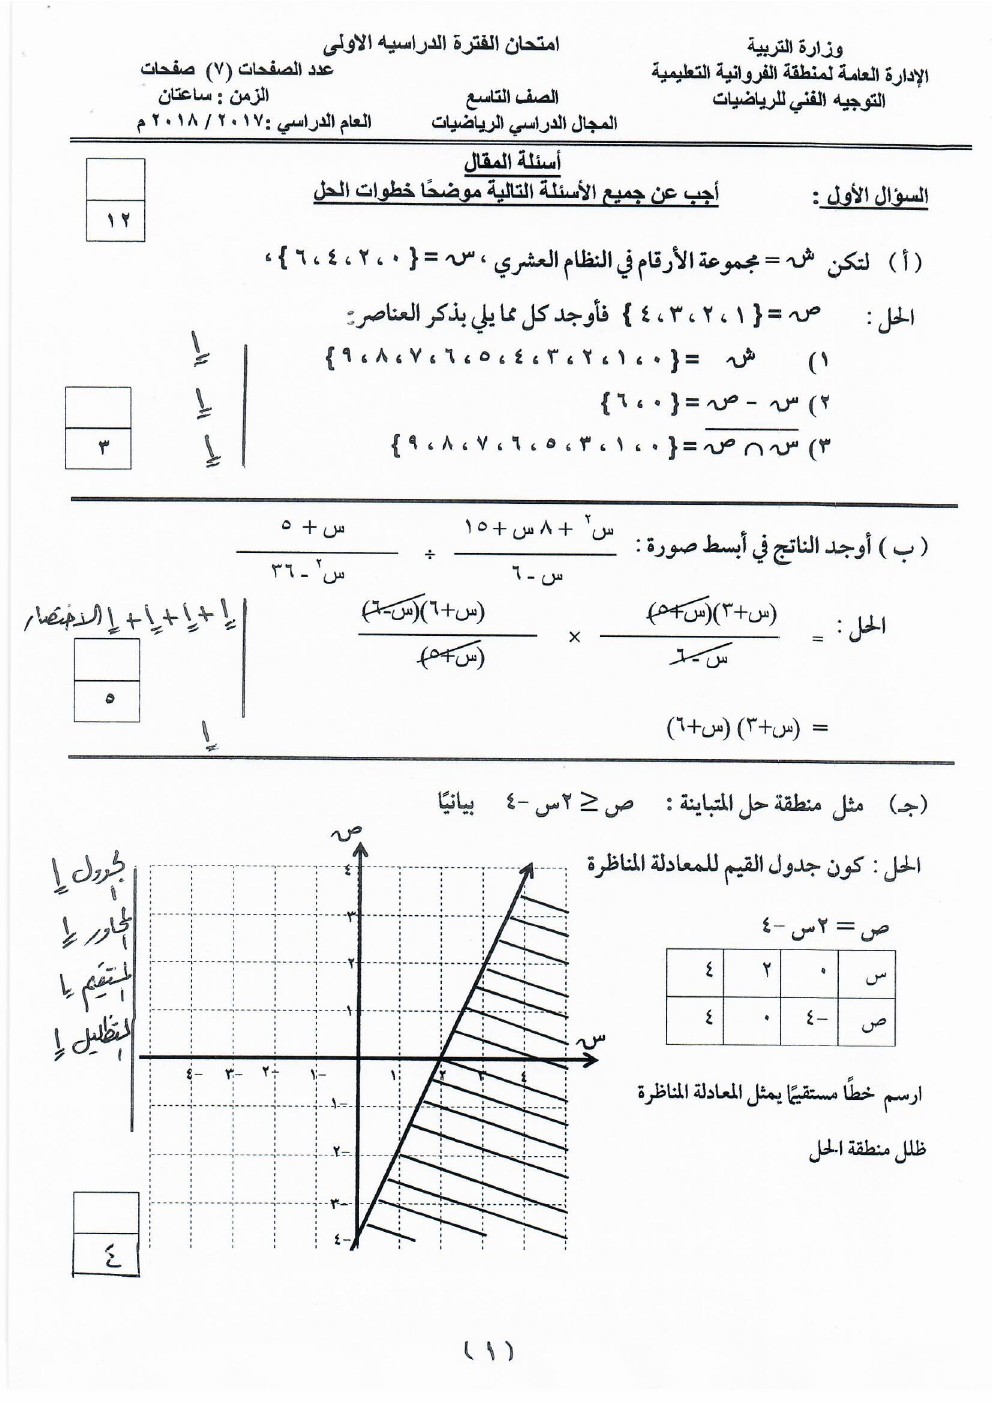 وزارة التربية
الإدارة العامة لمنطقة الفروانية التعليمية
التوجيه الفني للرياضيات
امتحان الفترة الدراسيه الاولى
الصف التاسع
المجال الدراسي الرياضيات
عدد الصفحات (٧) صفحات
الزمن : ساعتان
العام الدراسي :٢٠١٧ / ٢٠١٨ م
أسئلة المقال
السؤال الأول : أجب عن جميع الأسئلة التالية موضحًا خطوات الحل
١٢
(أ) لتكن ش = مجموعة الأرقام في النظام العشري ، س = {٠ ، ٢ ، ٤ ، ٦} ،
ص = {١ ، ٢ ، ٣ ، ٤} فأوجد كل مما يلي بذكر العناصر:
الحل :
١) ش = {٠ ، ١ ، ٢ ، ٣ ، ٤ ، ٥ ، ٦ ، ٧ ، ٨ ، ٩} ١
٢) س – ص = {٠ ، ٦} ١
٣) س ∩ ص = {٠ ، ١ ، ٣ ، ٥ ، ٦ ، ٧ ، ٨ ، ٩} ١
٣
(ب) أوجد الناتج في أبسط صورة : س٢ + ٨ س + ١٥ / س – ٦ ÷ س + ٥ / س٢ – ٣٦
الحل : = (س+٣)(س+٥) / س – ٦ × (س+٦)(س–٦) / (س+٥)
١ + ١ + ١ + ١ الاختصار
٥
= (س+٣) (س+٦)
١
(جـ) مثل منطقة حل المتباينة : ص ≤ ٢س –٤ بيانيًا
الحل : كون جدول القيم للمعادلة المناظرة
ص = ٢س –٤
س ٠ ٢ ٤
ص –٤ ٠ ٤
ارسم خطًا مستقيمًا يمثل المعادلة المناظرة
ظلل منطقة الحل
ص
٤
٣
٢
١
س
–٤ –٣ –٢ –١ ١ ٢ ٣ ٤
–١
–٢
–٣
–٤
الجدول ١
المحاور ١
المستقيم ١
التظليل ١
٤
(١)